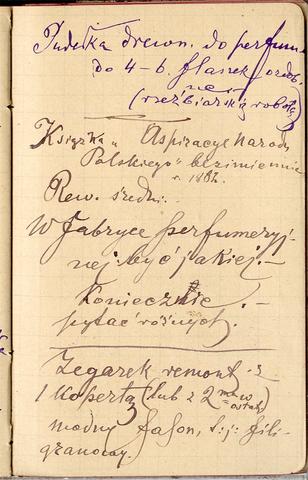 Pudełka drewn. do perfum
do 4-6. flasek, ozdob
ne
(rzeźbiarską robotą)
Książka „Aspiracye Narodu
Polskiego" bezimiennie
r. 1882.
Rew. średni.
W Fabryce perfumeryj-
nej być jakiej.—
Koniecznie.—
pytać różnych.
Zegarek remont. z
1 Kopertą (lub z 2ma w
ostat.)
modny fason, t.j. fili-
granowy.